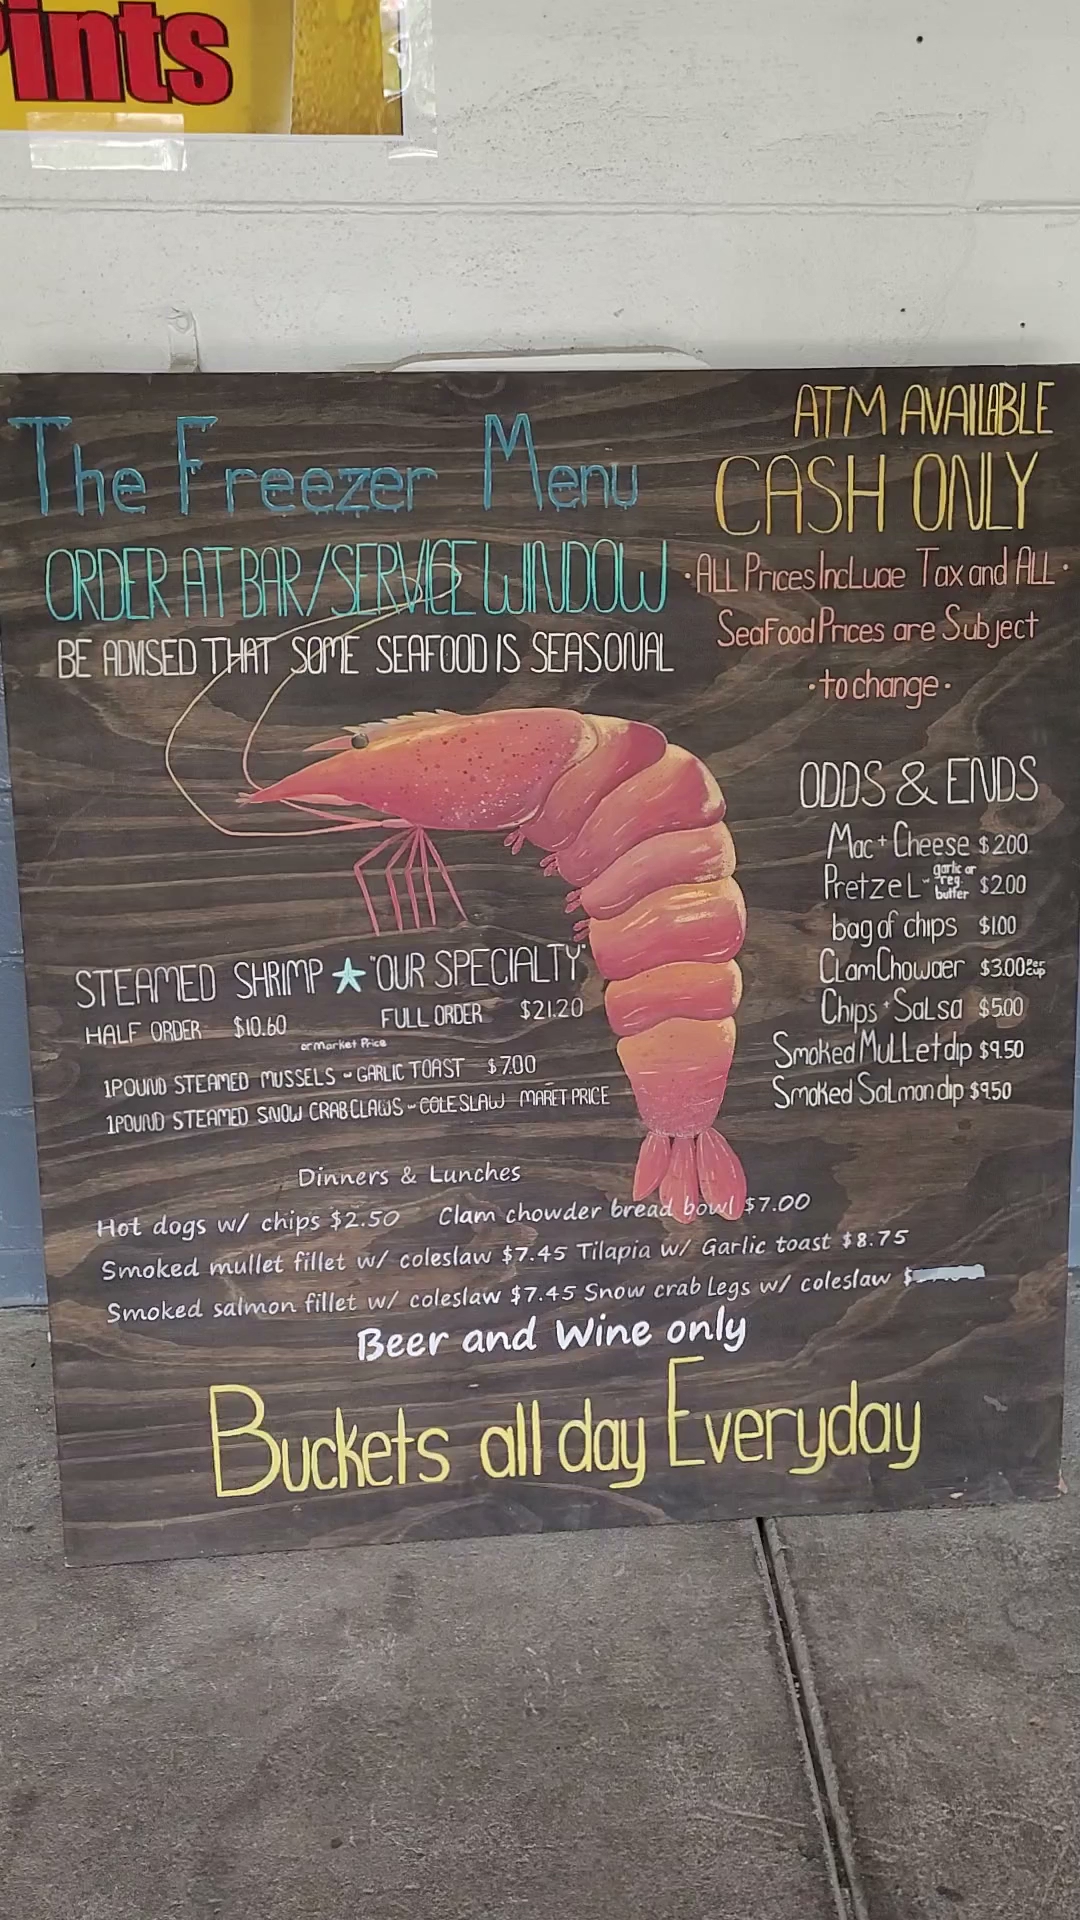 ints
The Freezer Menu
ORDER AT BAR/SERVICE WINDOW
BE ADVISED THAT SOME SEAFOOD IS SEASONAL
ATM AVAILABLE
CASH ONLY
·ALL Prices IncLude Tax and ALL·
SeaFood Prices are Subject
·to change·
ODDS & ENDS
Mac + Cheese $2.00
PretzeL - garlic or reg. butter $2.00
bag of chips $1.00
CLam Chowder $3.00 per cup
Chips + SaLsa $5.00
Smoked MuLLet dip $9.50
Smoked SaLmon dip $9.50
STEAMED SHRIMP ★ "OUR SPECIALTY"
HALF ORDER $10.60 FULL ORDER $21.20
or Market Price
1 POUND STEAMED MUSSELS - GARLIC TOAST $7.00
1 POUND STEAMED SNOW CRAB CLAWS - COLESLAW MARET PRICE
Dinners & Lunches
Hot dogs w/ chips $2.50 Clam chowder bread bowl $7.00
Smoked mullet fillet w/ coleslaw $7.45 Tilapia w/ Garlic toast $8.75
Smoked salmon fillet w/ coleslaw $7.45 Snow crab Legs w/ coleslaw $
Beer and Wine only
Buckets all day Everyday